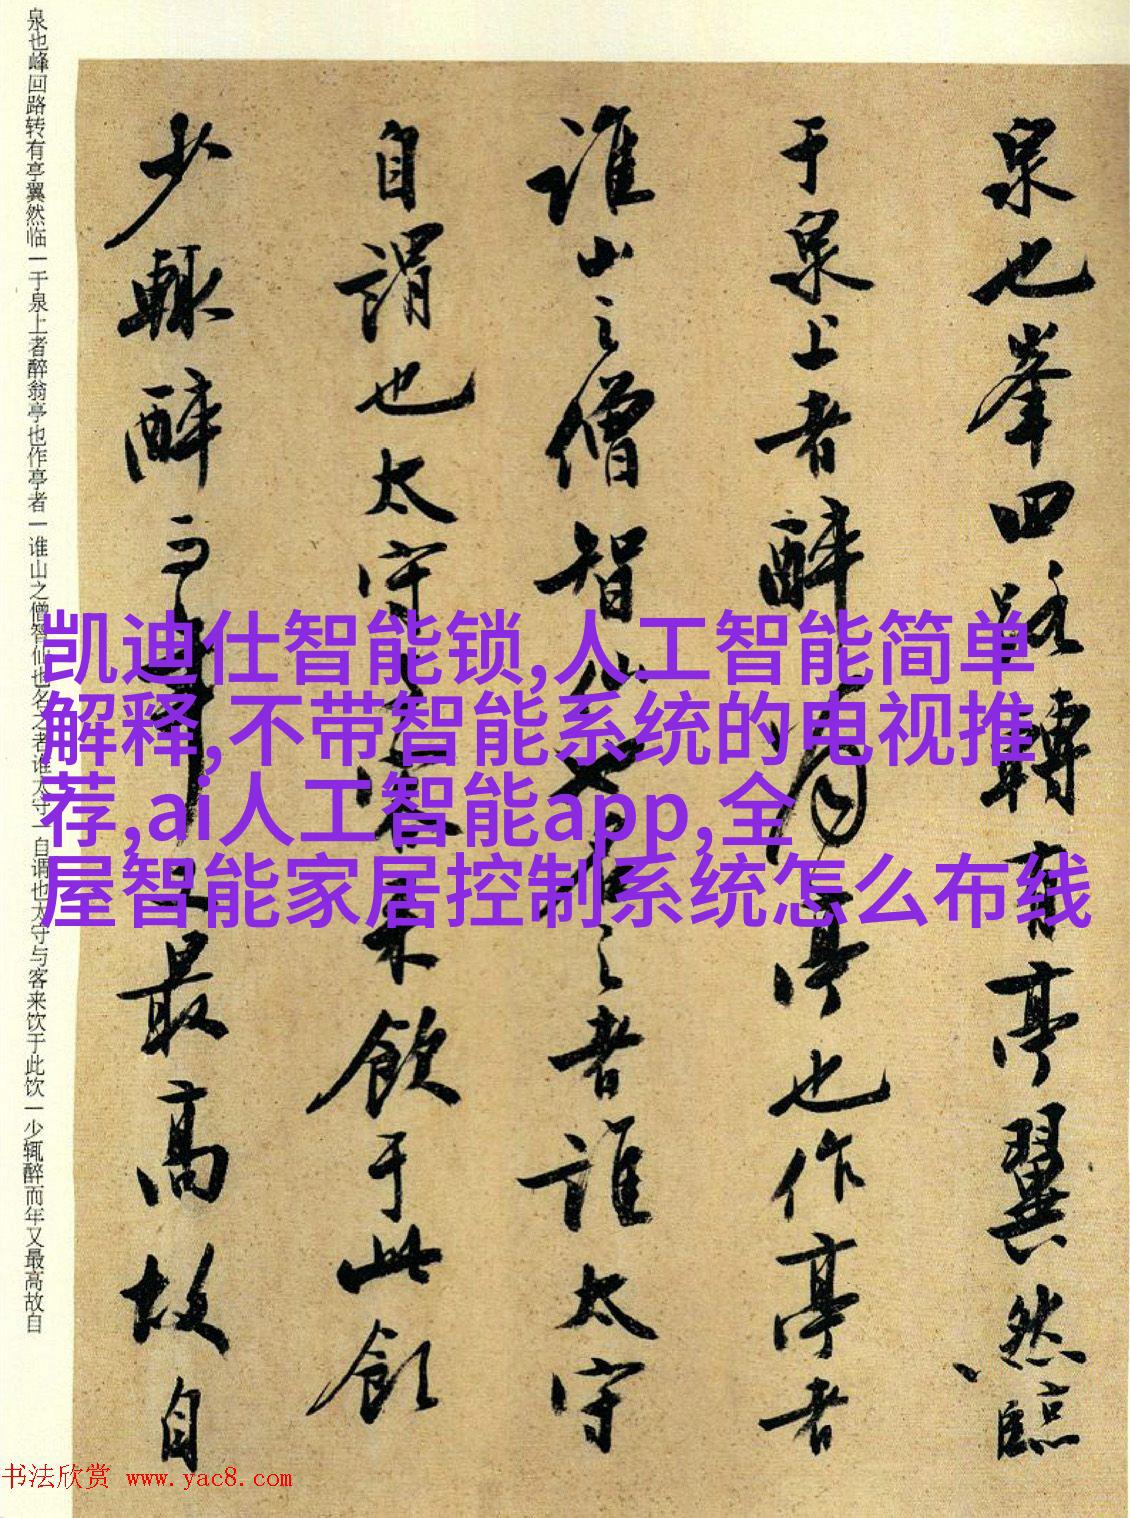 泉也峯回路轉有亭翼然臨
于泉上者醉翁亭也作亭者
誰山之僧智仙也名之者誰太守
自謂也太守与客来飲于此飲
少輒醉而年又最高故自
泉也峰回路转有亭翼然临一于泉上者醉翁亭也作亭者一谁山之僧智仙也名之者谁太守一自谓也太守与客来饮于此饮一少辄醉而年又最高故自
凯迪仕智能锁,人工智能简单
解释,不带智能系统的电视推
荐,ai人工智能app,全
屋智能家居控制系统怎么布线
书法欣赏 www.yac8.com